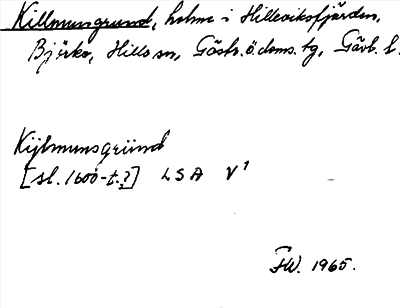 Killmunsgrund, holme i Hilleviksfjärden,
Björke, Hille sn, Gästr. ö. doms. tg, Gävb. l.
Kijlmunsgründ
[sl. 1600-t.?] LSA V¹
FW. 1965.